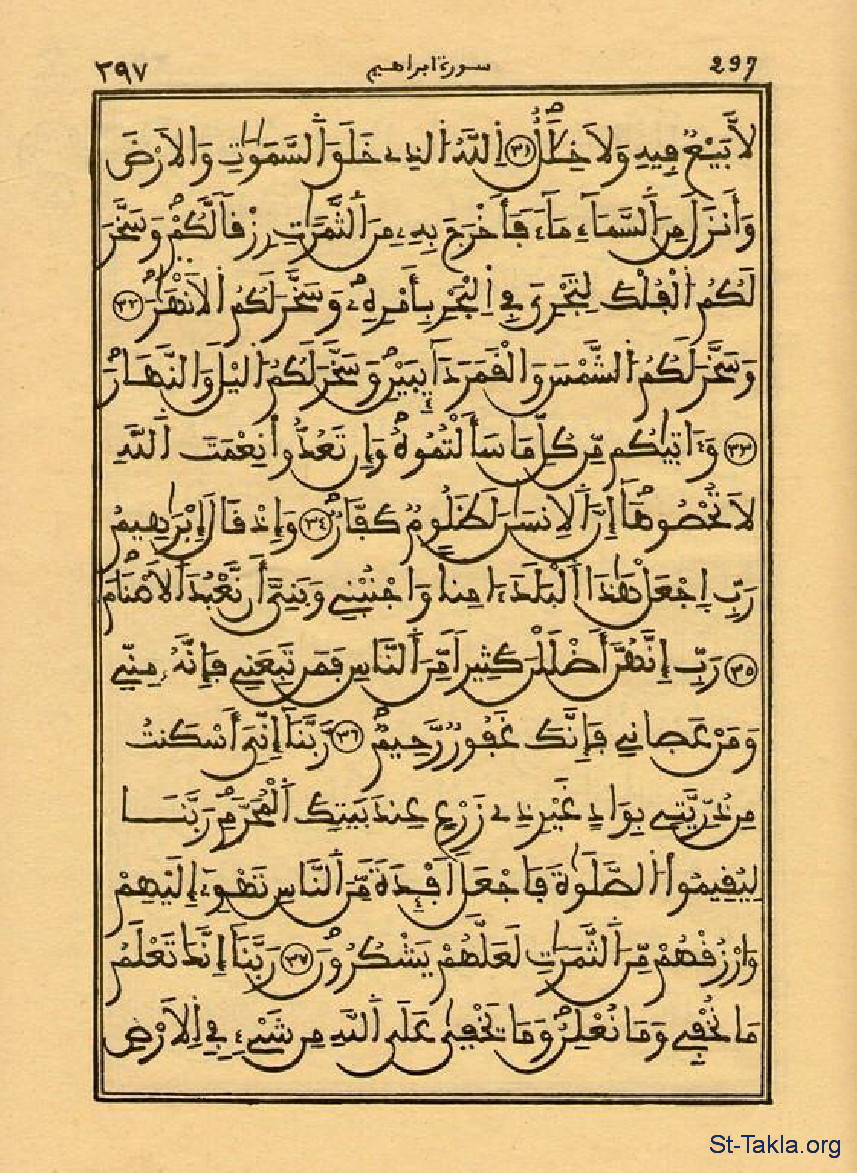 297 سورة ابراهيم ٣٩٧
لَّا بَيْعٌ فِيهِ وَلَا خِلَٰلٌ ٣١ اِ۬للَّهُ اُ۬لذِے خَلَقَ اَ۬لسَّمَٰوَٰتِ وَالَارْضَ
وَأَنزَلَ مِنَ اَ۬لسَّمَآءِ مَآءٗ فَأَخْرَجَ بِهِۦ مِنَ اَ۬لثَّمَرَٰتِ رِزْقاٗ لَّكُمْ وَسَخَّرَ
لَكُمُ اُ۬لْفُلْكَ لِتَجْرِيَ فِے اِ۬لْبَحْرِ بِأَمْرِهِۦ وَسَخَّرَ لَكُمُ اُ۬لَانْهَٰرَ ٣٢
وَسَخَّرَ لَكُمُ اُ۬لشَّمْسَ وَالْقَمَرَ دَآئِبَيْنِ وَسَخَّرَ لَكُمُ اُ۬ليْلَ وَالنَّهَارَ
٣٣ وَءَاتٜيٰكُم مِّن كُلِّ مَا سَأَلْتُمُوهُ وَإِن تَعُدُّواْ نِعْمَتَ اَ۬للَّهِ
لَا تُحْصُوهَآ إِنَّ اَ۬لِانسَٰنَ لَظَلُومٌ كَفَّارٌ ٣٤ وَإِذْ قَالَ إِبْرَٰهِيمُ
رَبِّ اِ۪جْعَلْ هَٰذَا اَ۬لْبَلَدَ ءَامِناٗ وَاجْنُبْنِے وَبَنِيَّ أَن نَّعْبُدَ اَ۬لَاصْنَامَ
٣٥ رَبِّ إِنَّهُنَّ أَضْلَلْنَ كَثِيراٗ مِّنَ اَ۬لنَّاسِ فَمَن تَبِعَنِے فَإِنَّهُۥ مِنِّے
وَمَنْ عَصَانِے فَإِنَّكَ غَفُورٌ رَّحِيمٌ ٣٦ رَّبَّنَآ إِنِّيَ أَسْكَنتُ
مِن ذُرِّيَّتِے بِوَادٍ غَيْرِ ذِے زَرْعٍ عِندَ بَيْتِكَ اَ۬لْمُحَرَّمِ رَبَّنَا
لِيُقِيمُواْ اُ۬لصَّلَوٰةَ فَاجْعَلَ اَفْـِٕدَةٗ مِّنَ اَ۬لنَّاسِ تَهْوِےٓ إِلَيْهِمْ
وَارْزُقْهُم مِّنَ اَ۬لثَّمَرَٰتِ لَعَلَّهُمْ يَشْكُرُونَ ٣٧ رَبَّنَآ إِنَّكَ تَعْلَمُ
مَا نُخْفِے وَمَا نُعْلِنُ وَمَا يَخْف۪يٰ عَلَى اَ۬للَّهِ مِن شَےْءٖ فِے اِ۬لَارْضِ
St-Takla.org